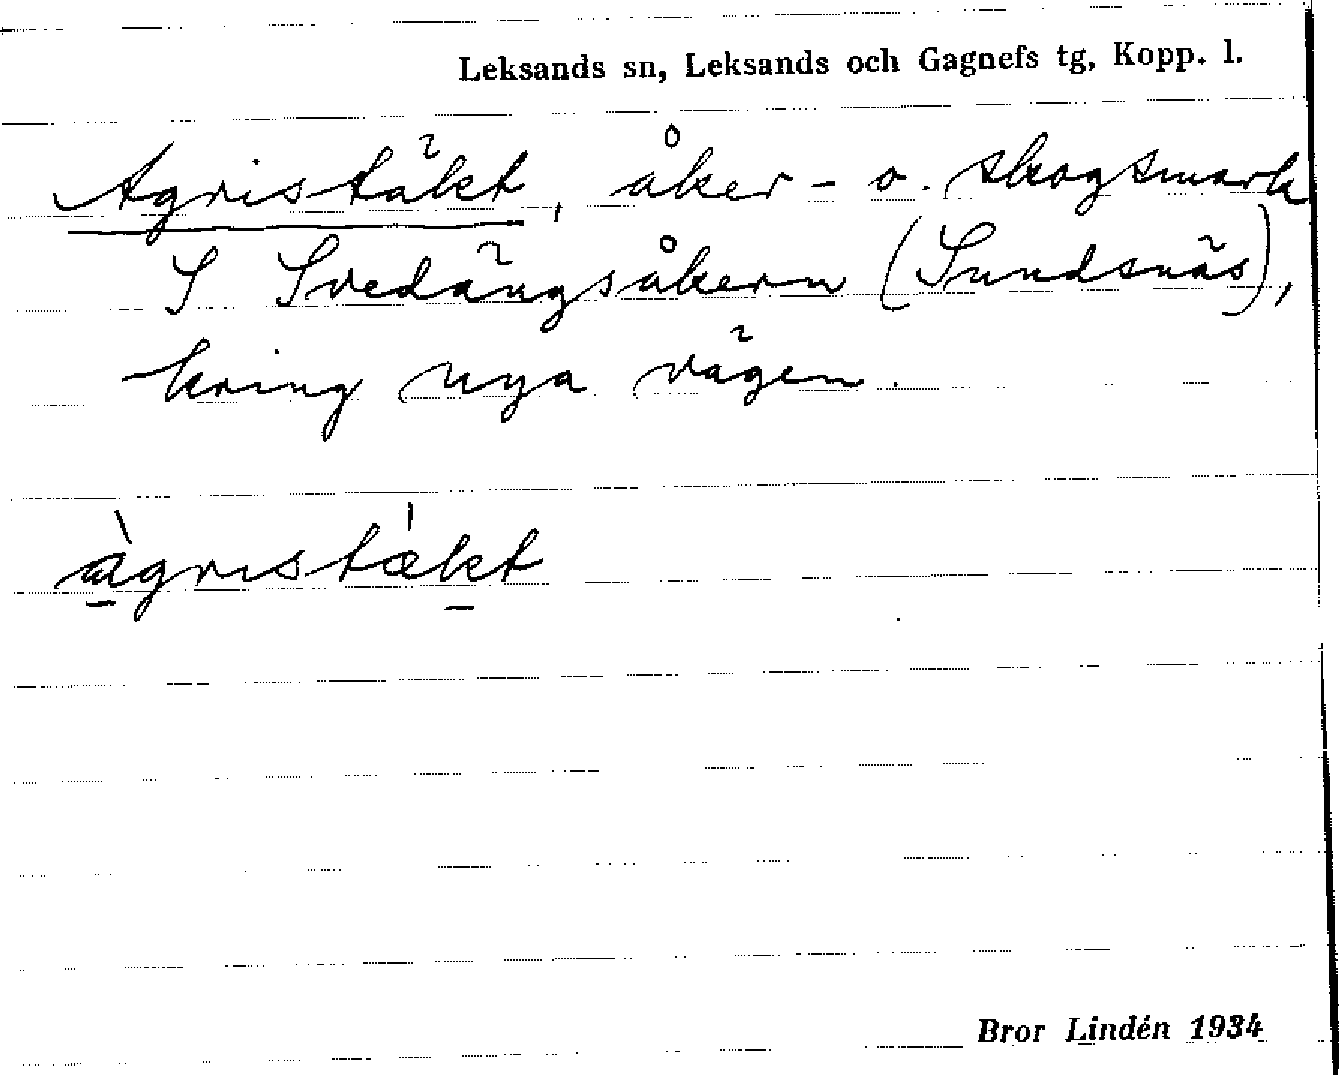 Leksands sn, Leksands och Gagnefs tg, Kopp. l.
Agristäkt, åker- o. skogsmark
S Svedängsåkern (Sundsnäs),
kring nya vägen.
àgristækt
Bror Lindén 1934